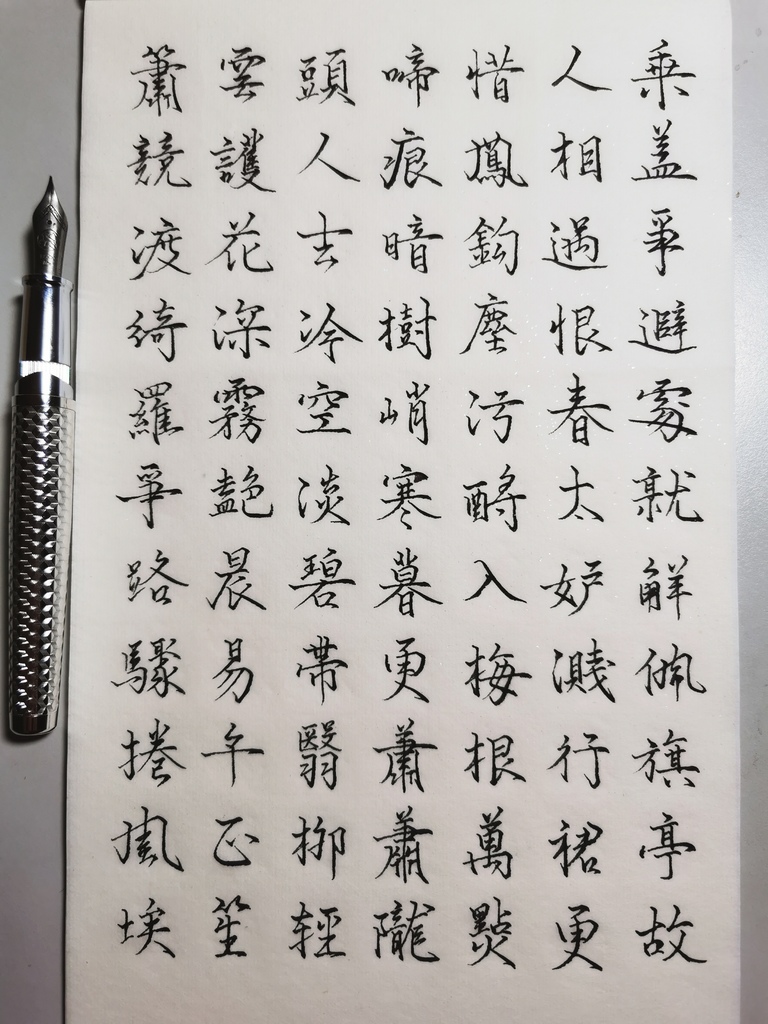 乘蓋爭避處就解佩旗亭故
人相遇恨春太妒濺行裙更
惜鳳鉤塵污酹入梅根萬點
啼痕暗樹峭寒暮更蕭蕭隴
頭人去冷空淡碧帶翳柳輕
雲護花深霧艷晨易午正笙
簫競渡綺羅爭路驟捲風埃